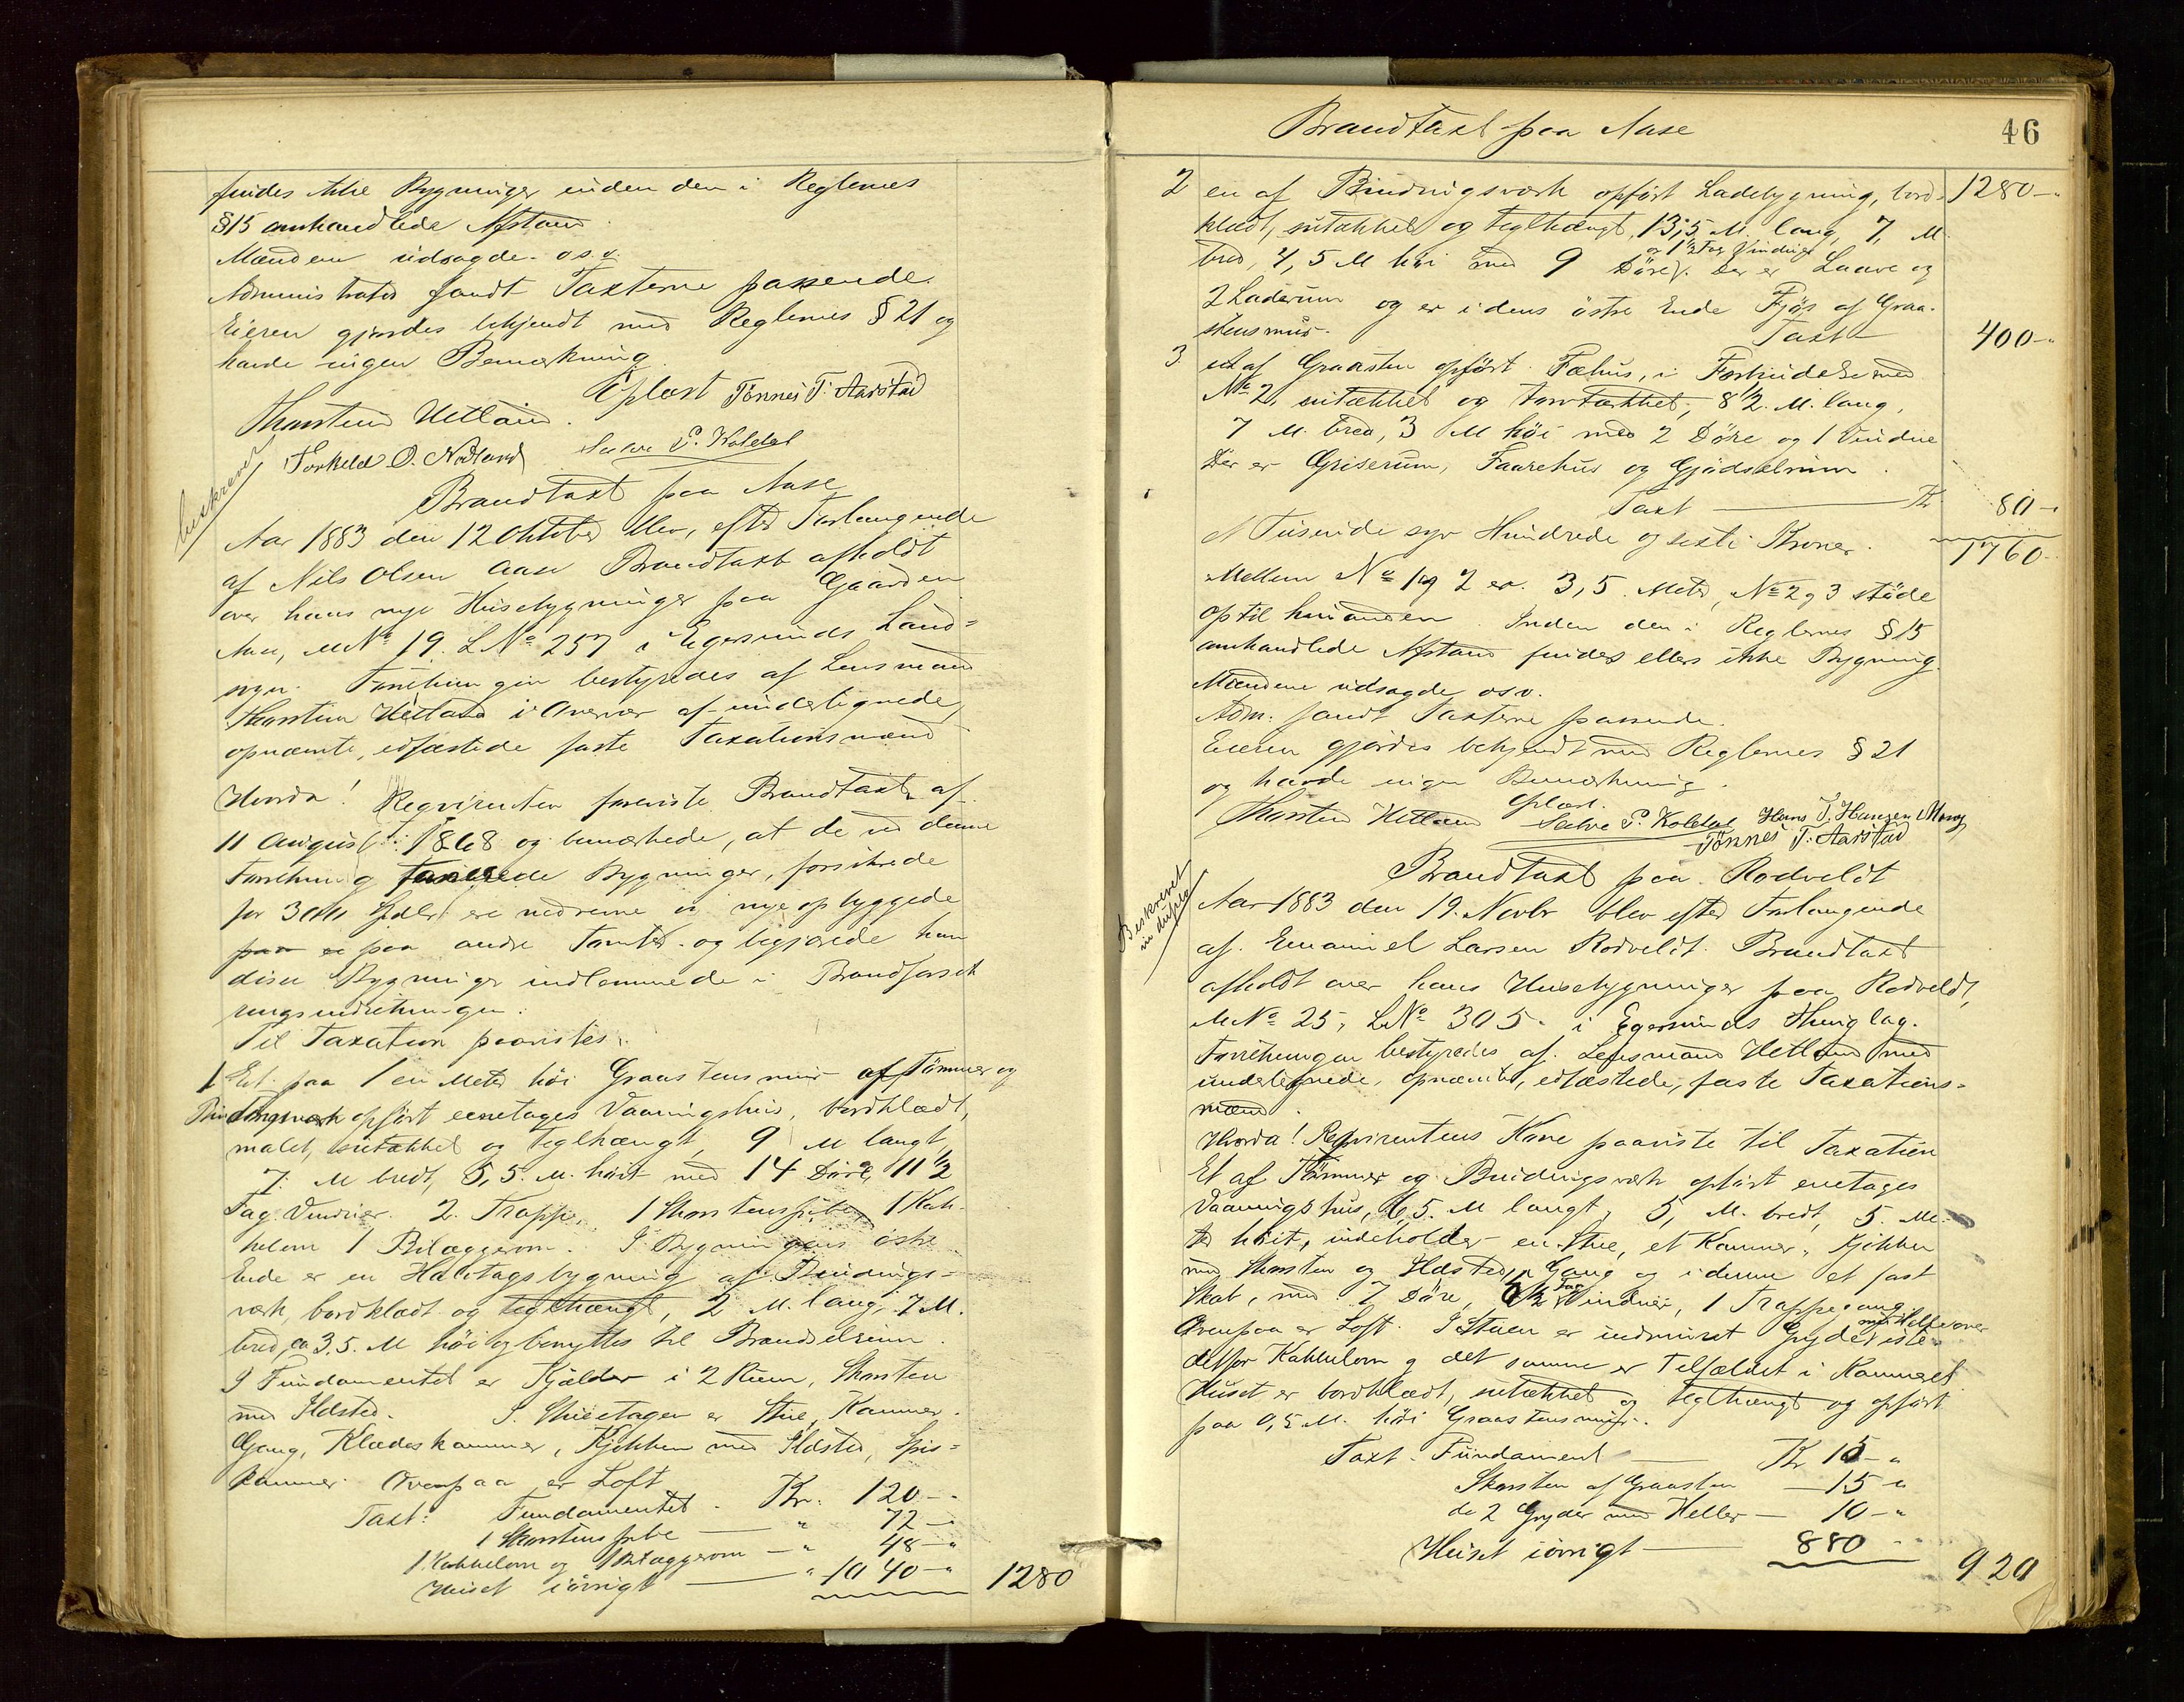 findes ikke Bygninger inden den i Reglernes
§15 omhandlede Afstand.
Mændene udsagde o.s.v.
Administrator fandt Taxterne passende.
Eieren gjordes bekjendt med Reglernes §21 og
havde ingen Bemærkning
Oplæst Tönnes T. Aarstad
Thorsten Hetland.
Torkeld O. Netland Salve P. Koldal
beskrevet
Brandtaxt paa Aase
Aar 1883 den 12 Oktober blev, efter Forlangende
af Nils Olsen Aase Brandtaxt afholdt
over hans nye Husebygninger paa Gaarden
Aase, M.No 19. L.No 257 i Egersunds Land=
sogn. Forretningen bestyredes af Lensmand
Thorsten Hetland i Overvær af undertegnede,
opnævnte, edfæstede faste Taxationsmænd
Hvorda! Reqvirenten foreviste Brandtaxt af
11 August 1868 og bemærkede, at de ved denne
Forretning taxerede Bygninger, forsikrede
for 300 Spdlr ere nedrevne og nye opbyggede
paa andre Tomter og begjærede han
disse Bygninger indlemmede i Brandforsik
ringsindretningen.
Til Taxation paavistes:
1 Et paa 1 en Meter höi Graastensmur af Tömmer og
Bindingsværk opfört eenetages Vaaningshus, bordklædt,
malet, sutækket og teglhængt, 9 M langt,
7. M bredt, 5,5. M. höit med 14 Döre, 11½
Fag Vinduer. 2. Trappe, 1 Skorstenspibe, 1 Kak-
kelovn 1 Bilæggerovn. I Bygningens östre
Ende er en Halvtagsbygning af Bindings=
værk, bordklædt og teglhængt, 2 M. lang, 7 M.
bred, ca 3,5. M höi og benyttes til Brændselsrum.
I Fundamentet er Kjælder i 2 Rum, Skorsten
med Ildsted. I Stueetagen er Stue, Kammer.
Gang, Klædeskammer, Kjökken med Ildsted, Spis=
kammer. Ovenpaa er Loft
Taxt: Fundamentet. Kr. 120 - "
1 Skorstenspibe — " 72 - "
1 Kakkelovn og 1 Bilæggerovn — " 48 - "
Huset iövrigt — " 1040 - " 1280
Brandtaxt paa Aase
46
2 en af Bindingsværk opfört Ladebygning, bord= 1280 - "
klædt, sutækket og teglhængt, 13,5 M. lang, 7, M
bred, 4,5 M höi med 9 Döre og 1½ Fag Vinduer. Der er Laave og
2 Laderum og er i dens östre Ende Fjös af Graa-
stensmur. Taxt — 400 - "
3 et af Graasten opfört Fæhus, i Forbindelse med
No 2, sutækket og torvtækket, 8½. M. lang,
7 M. bred, 3 M höi med 2 Döre og 1 Vindue
Der er Griserum, Faarehus og Gjödselrum.
Taxt — Kr 80 - "
Et Tusinde syv Hundrede og sexti Kroner. 1760 -
Mellem No 1 og 2 er. 3,5. Meter, No 2 og 3 stöde
op til hinanden. Inden den i Reglernes §15
omhandlede Afstand findes ellers ikke Bygning.
Mændene udsagde o.s.v.
Adm: fandt Taxterne passende.
Eieren gjordes bekjendt med Reglernes §21
og havde ingen Bemærkning.
Oplæst.
Thorsten Hetland Salve P. Koldal Hans T. Hansen Mong
Tönnes T. Aarstad
Brandtaxt paa Rodveldt
Beskrevet
in duplo
Aar 1883 den 19. Novbr blev efter Forlangende
af. Emanuel Larsen Rodveldt. Brandtaxt
afholdt over hans Husebygninger paa Rodveldt,
M.No 25, L.No 305. i Egersunds Thinglag.
Forretningen bestyredes af. Lensmand Hetland med
undertegnede, opnævnte, edfæstede, faste Taxations=
mænd.
Hvorda! Reqvirentens Kone paaviste til Taxation
Et af Tömmer og Bindingsværk opfört enetages
Vaaningshus, 6,5. M langt, 5, M. bredt, 5. Me-
ter höit, indeholder en Stue, et Kammer, Kjökken
med Skorsten og Ildsted, Gang og i denne et fast
Skab, med 7 Döre, Fag Vinduer, 1 Trappegang
Ovenpaa er Loft. I Stuen er indmuret Gryde med Helle over iste=
detfor Kakkelovn og det samme er Tilfældet i Kammeret
Huset er bordklædt, sutækket og teglhængt og opfört
paa 0,5 M. höi Graastensmur.
Taxt. Fundament — Kr 15 - "
Skorsten af Graasten — 15 - "
de 2 Gryder med Heller — 10 - "
Huset iövrigt — 880 920